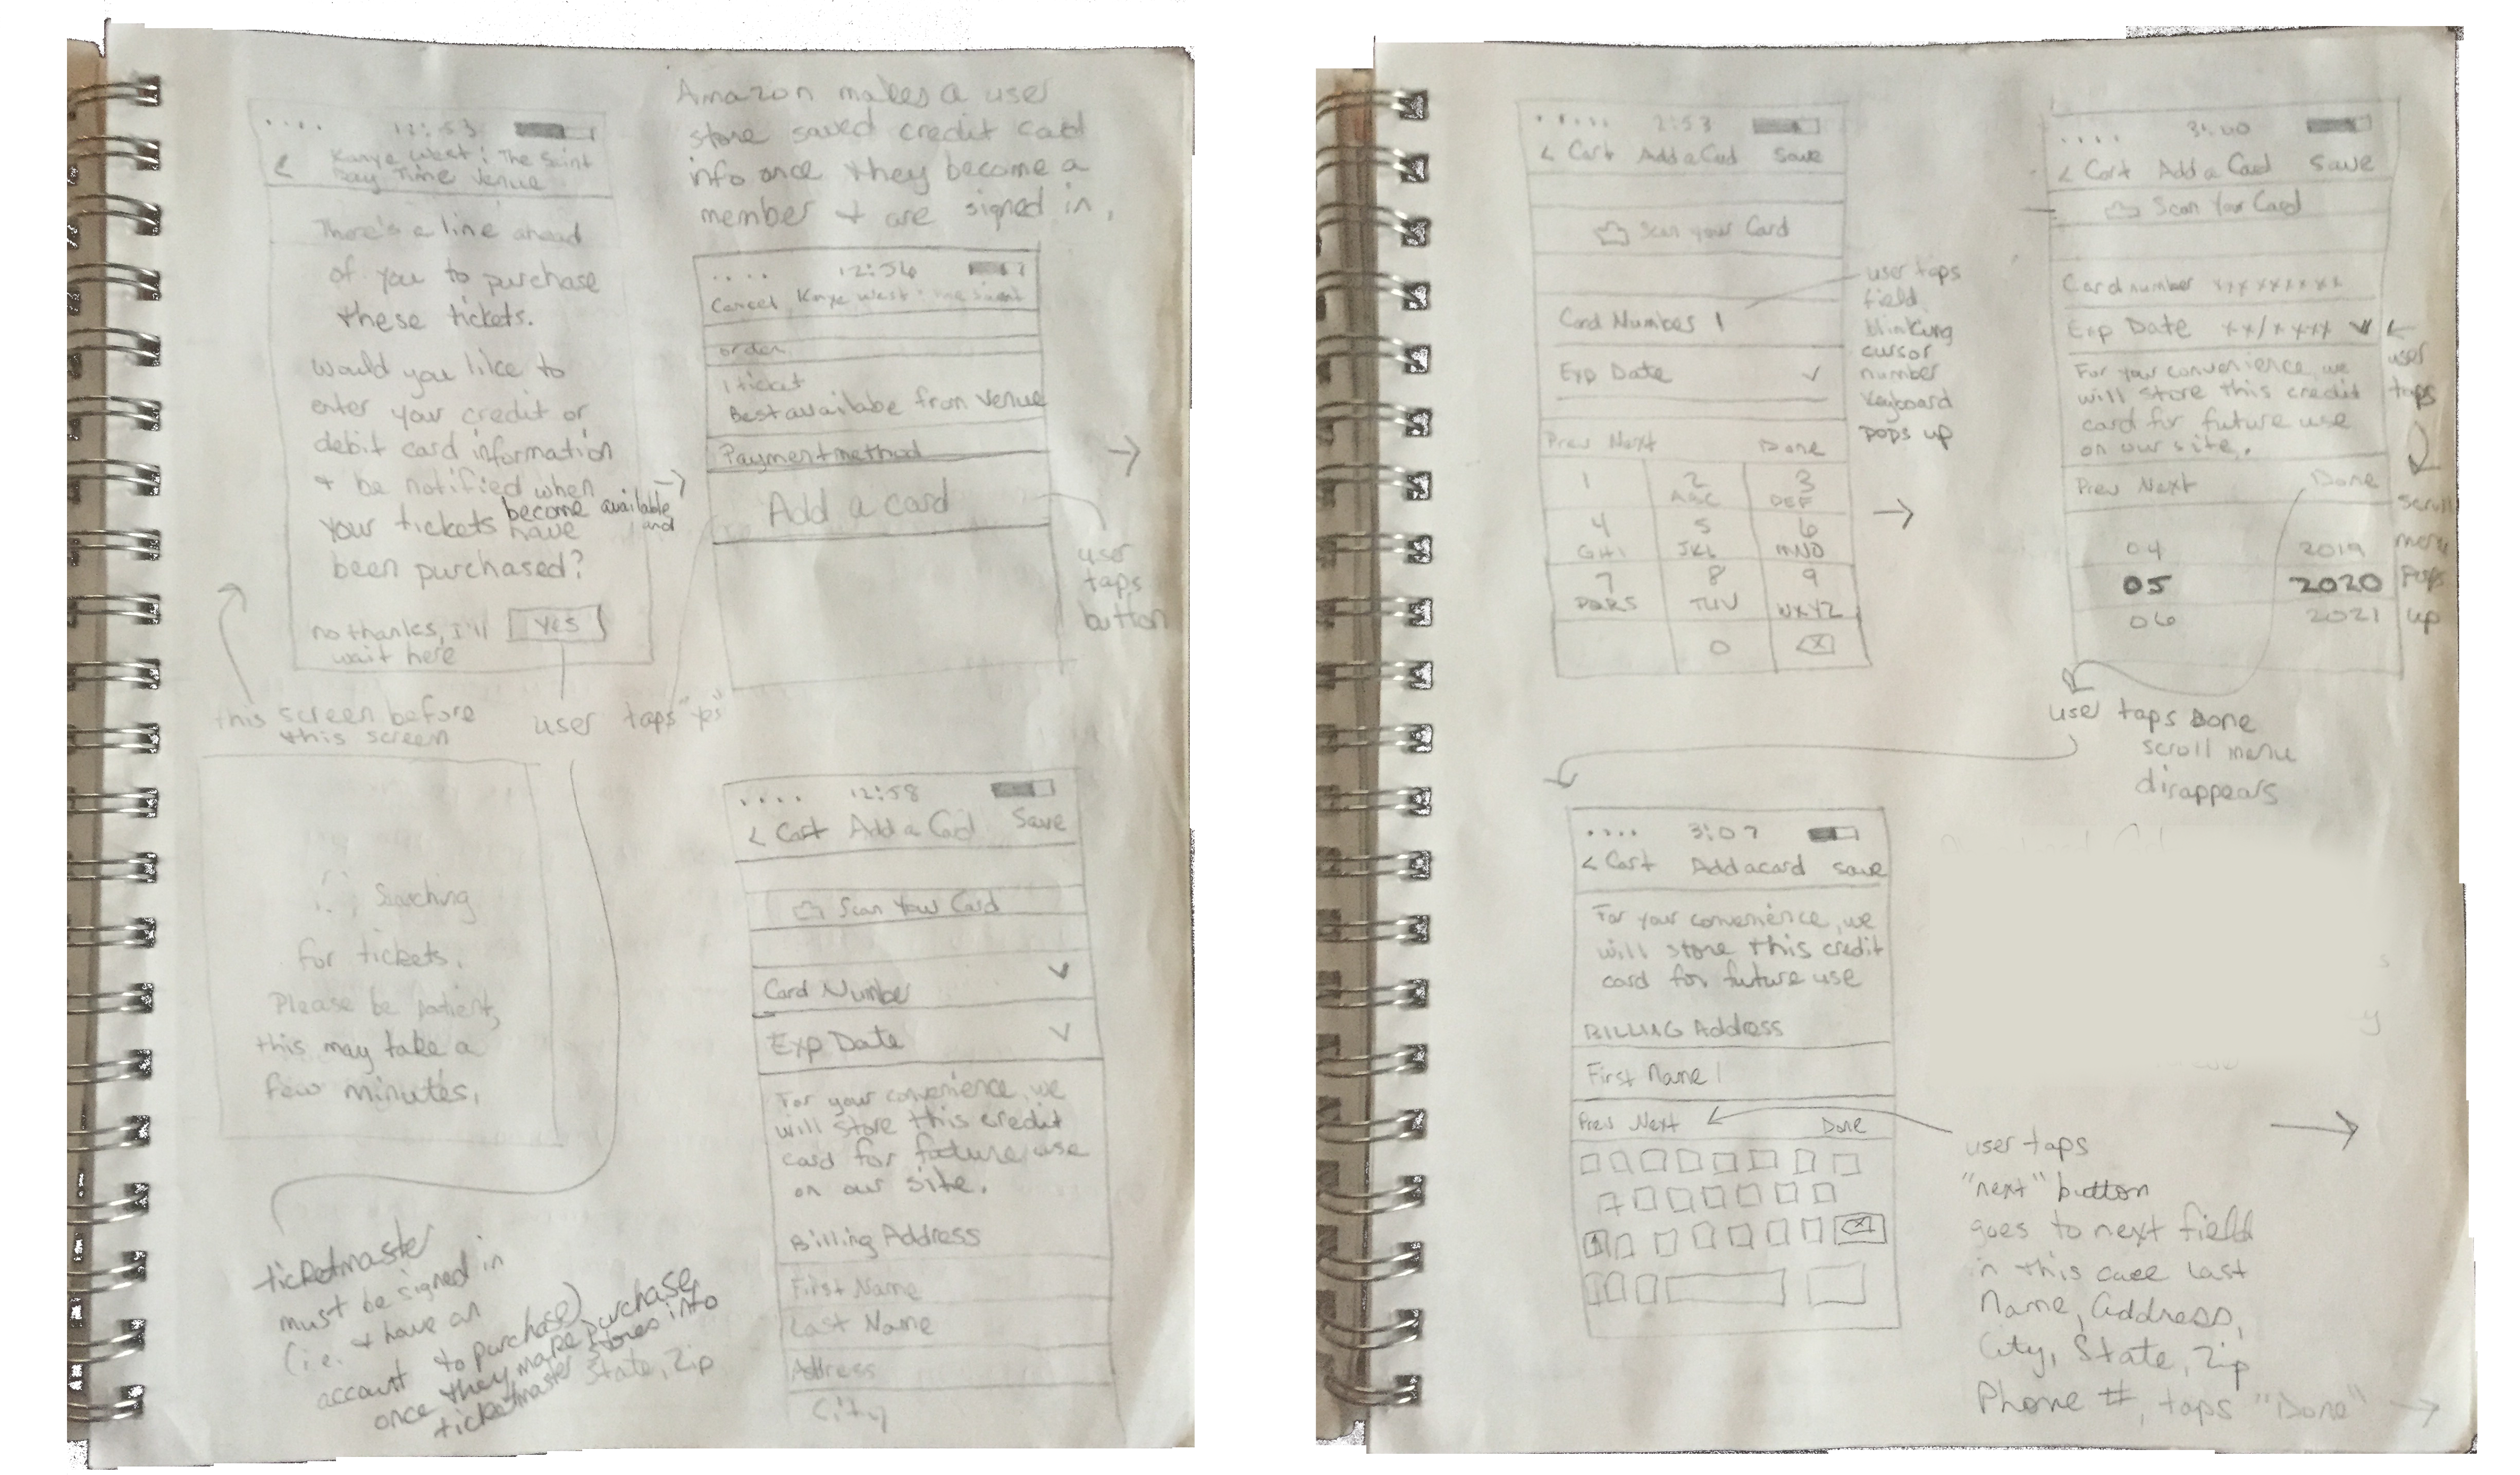 12:53
<
Kanye West: The Saint
Day Time Venue
There's a line ahead
of you to purchase
these tickets.
Would you like to
enter your credit or
debit card information
+ be notified when
your tickets become available
and
have
been purchased?
no thanks, i'll
wait here
yes
this screen before
this screen
user taps "yes"
Amazon makes a user
store saved credit card
info once they become a
member + are signed in.
12:56
Cancel Kanye West: The Saint
order
1 ticket
Best availabe from venue
Payment method
Add a card
user
taps
button
Searching
for tickets.
Please be patient,
this may take a
few minutes.
ticketmaster
must be signed in
(i.e. + have an
account to purchase)
once they make purchase,
ticketmaster stores into
State, Zip
12:58
< Cart Add a Card Save
Scan Your Card
Card Number
Exp Date
For your convenience, we
will store this credit
card for future use
on our site.
Billing Address
First Name
Last Name
Address
City
2:53
< Cart Add a Card Save
Scan your Card
Card Number |
Exp Date
Prev Next Done
1 2 3
ABC DEF
4 5 6
GHI JKL MNO
7 8 9
PQRS TUV WXYZ
0
user taps
field
blinking
cursor
number
keyboard
pops up
3:00
< Cart Add a Card Save
Scan Your Card
Card number xxxxxxxxx
Exp Date xx/xxxx
For your convenience, we
will store this credit
card for future use
on our site.
Prev Next Done
04 2019
05 2020
06 2021
user
taps
scroll
menu
pops
up
user taps Done
scroll menu
disappears
3:07
< Cart Add a card save
For your convenience, we
will store this credit
card for future use
BILLING Address
First Name |
Prev Next Done
user taps
"next" button
goes to next field
in this case Last
Name, address,
City, State, Zip
Phone #, taps "Done"